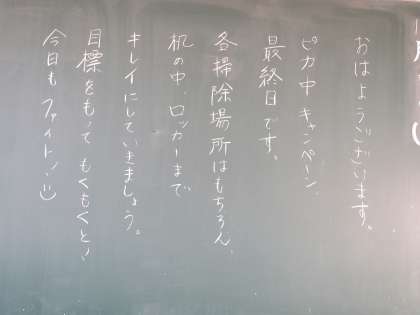 おはようございます。
ピカ中キャンペーン、
最終日です。
各掃除場所はもちろん、
机の中、ロッカーまで
キレイにしていきましょう。
目標をもって もくもくと、
今日も ファイト!!